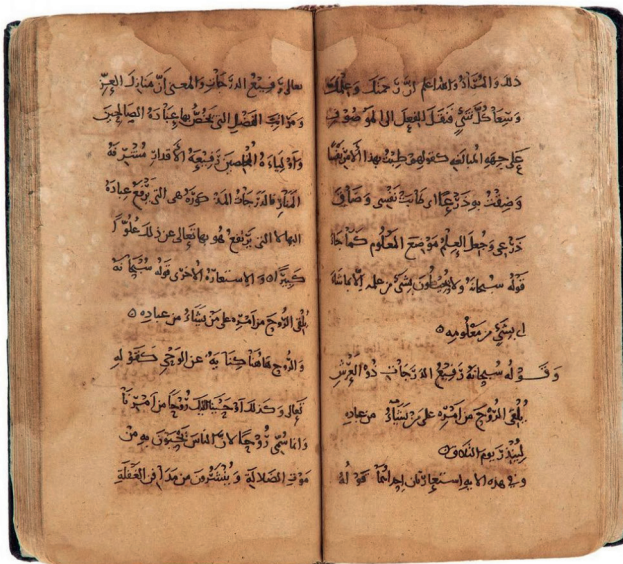 ذلك والمُرَادُ والله اعلم انَّ رَحمتَكَ وَعِلْمَكَ
وَسِعَا كُلَّ شَيْءٍ فنقلَ الفِعلَ الى الموْصُوْفِ
عَلى جهةِ المبالغه كقولهم طِبْتُ بهذا الأمرِ نَفْسًا
وَضِقْتُ به ذَرْعًا اي طابَتْ نَفْسي وَضَاقَ
ذَرْعي وَجعلَ العِلْمَ مَوْضِعَ المَعْلُومِ كَمَا جَا
قوله سُبحانهُ ولا يُحِيْطُونَ بِشَيْءٍ من علمه الّا بما شا
اي بشَيْءٍ من مَعْلُومِه ٥
وَقَوله سُبحَانهُ رَفيعُ الدَّرَجَاتِ ذُو العَرْشِ
يُلْقي الرُّوحَ مِن أمْرِهِ على مَنْ يَشَآءُ من عبادِهِ
لِيُنْذِرَ يومَ التلاقِ ٥
وفي هذه الايه استعارتان إحداهُمَا قولهُ
تعالى رَفيعُ الدرَجَاتِ والمعنى أنَّ منازلَ العِزِّ
وَمَراتبَ الفضْلِ التي يَخُصُّ بها عِبادَهُ الصالحينَ
وَاَوْلِياءَهُ المُخلصِينَ رَفيعَةُ الأقدارِ مُشْرِفَةُ
المَنَارِ فالدرَجَاتُ المذكورَةُ هي التي يَرْفعُ عِبادَهُ
اليها لا التي يَرْتفعُ هُو بها تَعالى عن ذلكَ عُلُوًّا
كَبِيْرًا ٥ والاستعارةُ الأُخْرى قوله سُبْحَانهُ
يُلْقي الرُّوحَ مِن أمْرِهِ على مَنْ يَشَآءُ من عبادِهِ ٥
والرُّوحُ هاهُنا كِنايَةٌ عن الوَحْي كَقَوْلِهِ
تعالى وَكَذلكَ أوْحَيْنَا اليْكَ رُوْحًا من أمْرِنَا
وَانما سُمِّيَ رُوْحًا لأنَّ الناسَ يَحْيَوْنَ به مِنْ
مَوْتِ الضلالةِ وَيُنْشَرُونَ مِن مَدافِنِ الغَفْلَةِ